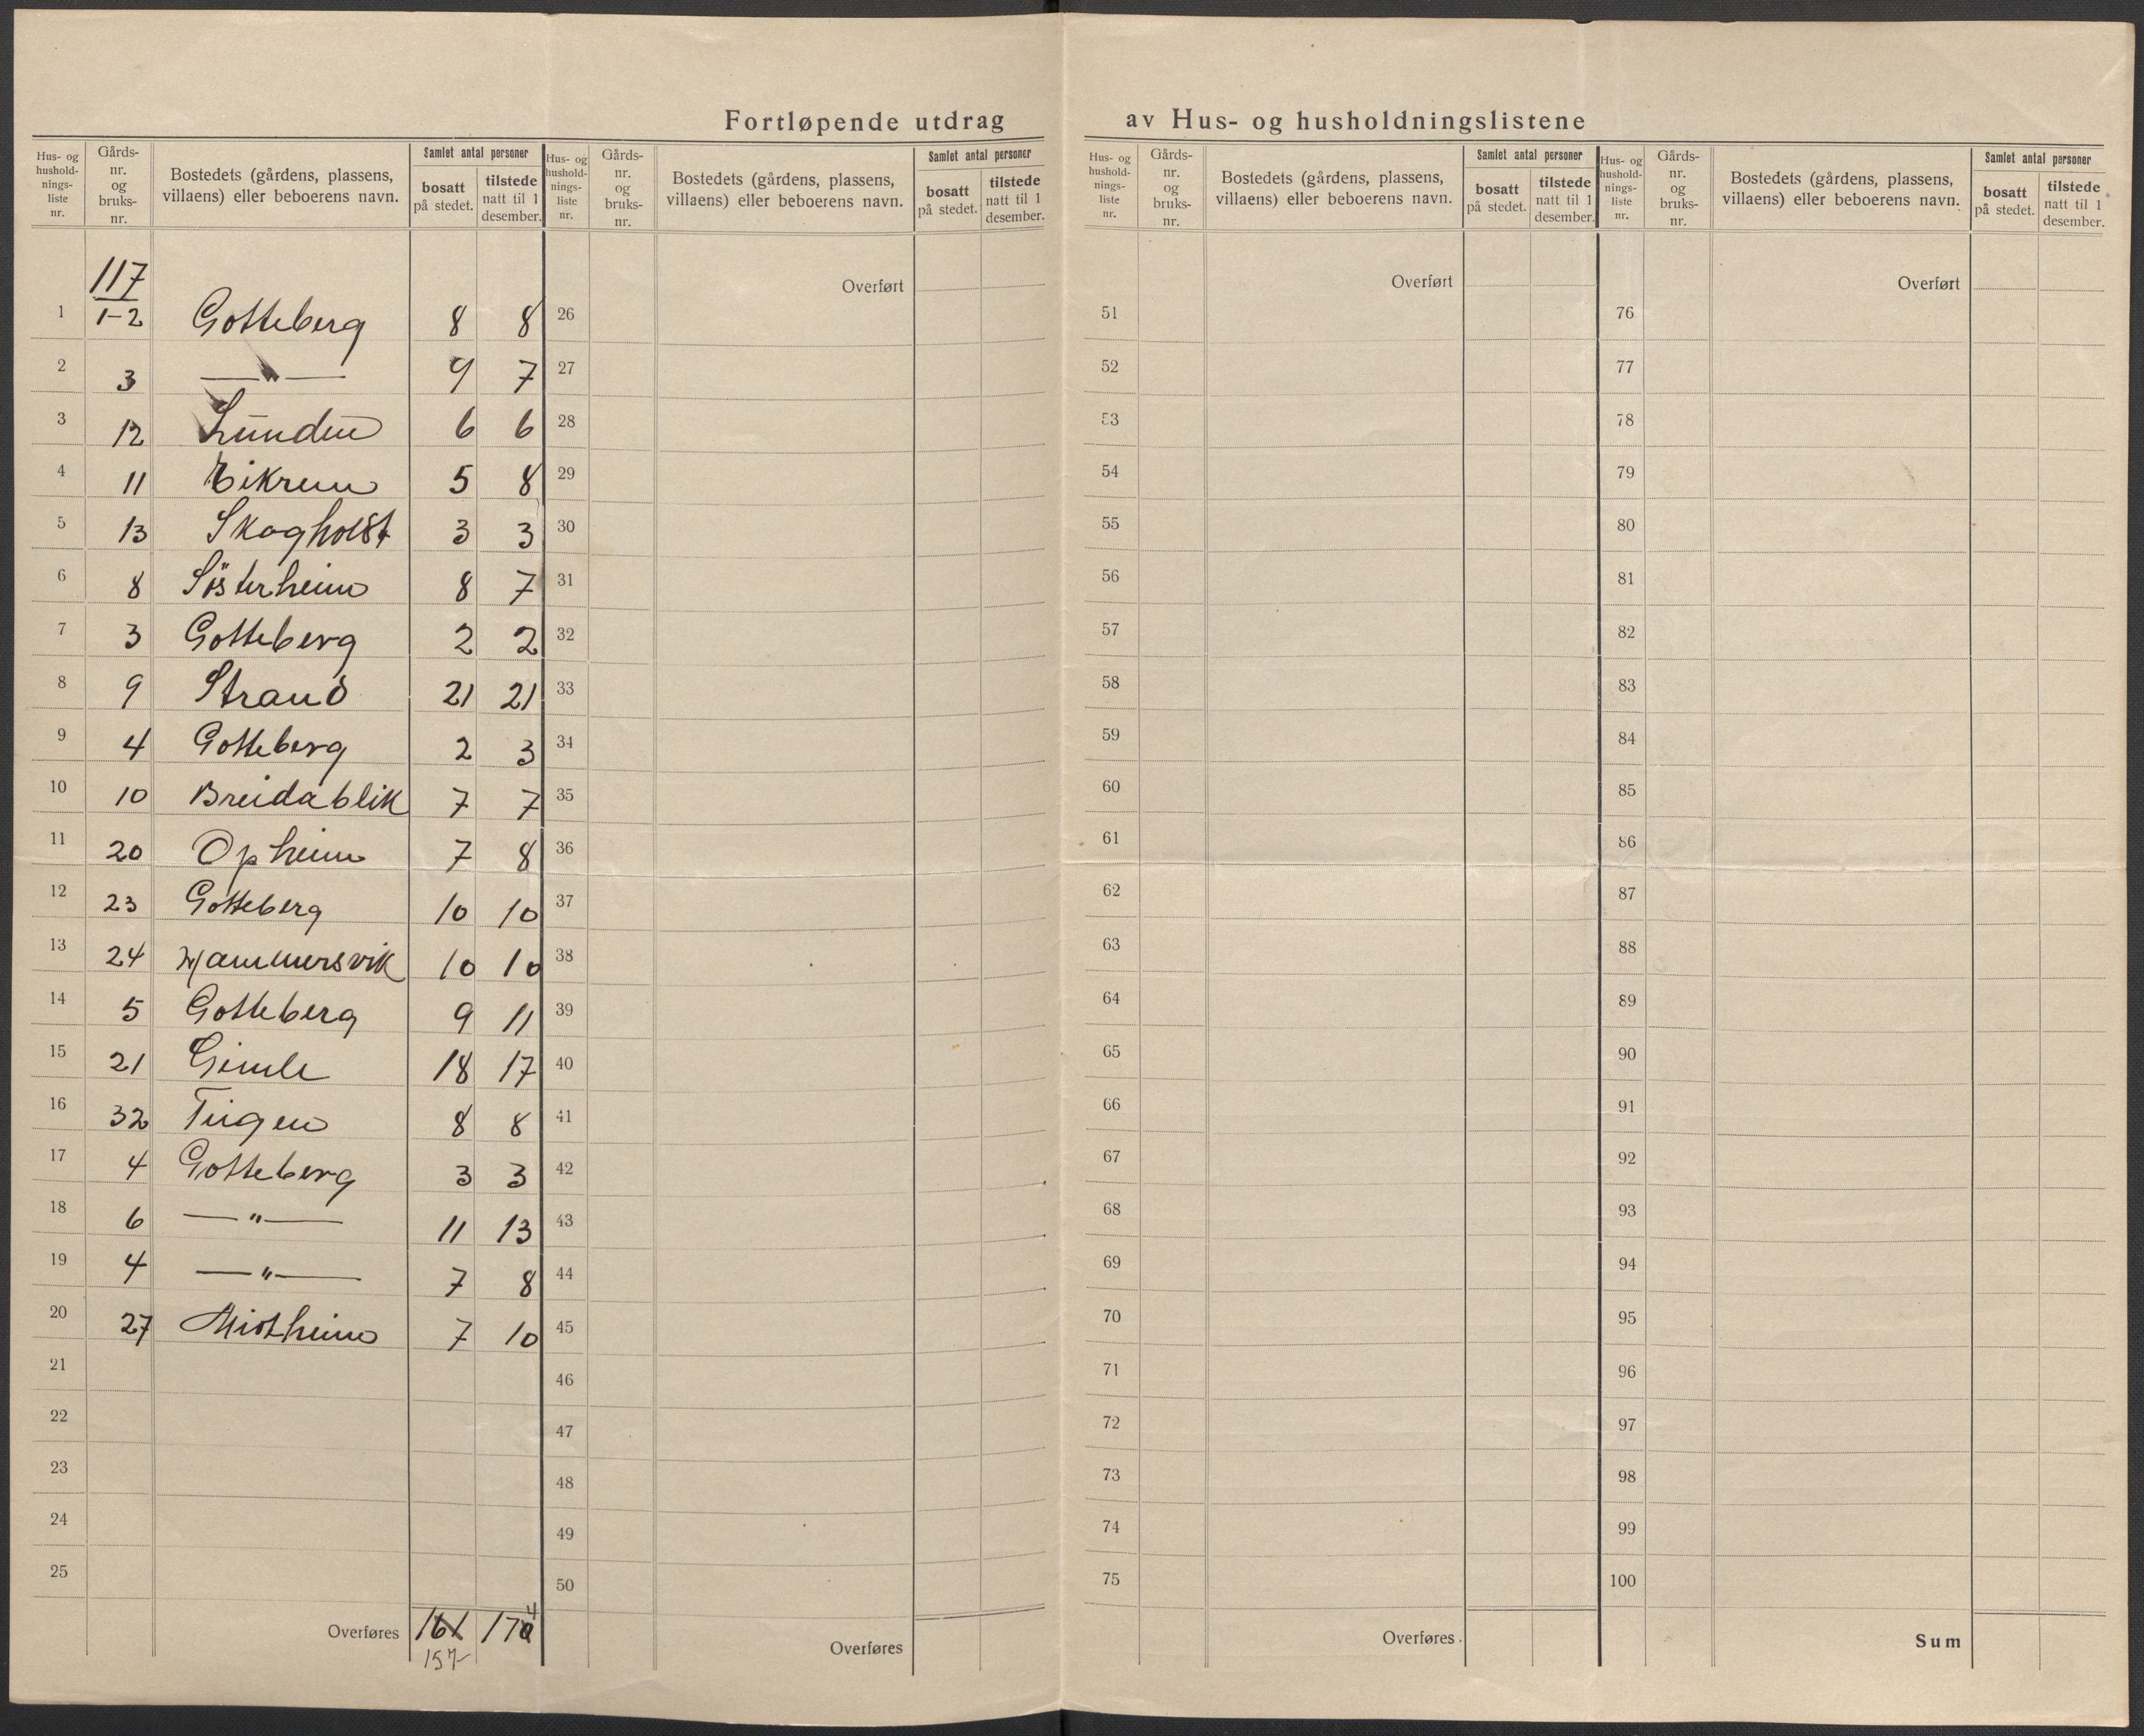 Fortløpende utdrag av Hus- og husholdningslistene
Hus- og hushold-nings-liste nr. | Gårds-nr. og bruks-nr. | Bostedets (gårdens, plassens, villaens) eller beboerens navn. | Samlet antal personer | bosatt på stedet. | tilstede natt til 1 desember.
Hus- og hushold-nings-liste nr. | Gårds-nr. og bruks-nr. | Bostedets (gårdens, plassens, villaens) eller beboerens navn. | Samlet antal personer | bosatt på stedet. | tilstede natt til 1 desember.
Hus- og hushold-nings-liste nr. | Gårds-nr. og bruks-nr. | Bostedets (gårdens, plassens, villaens) eller beboerens navn. | Samlet antal personer | bosatt på stedet. | tilstede natt til 1 desember.
Hus- og hushold-nings-liste nr. | Gårds-nr. og bruks-nr. | Bostedets (gårdens, plassens, villaens) eller beboerens navn. | Samlet antal personer | bosatt på stedet. | tilstede natt til 1 desember.
117
1 1-2 Gotteberg 8 8
2 3 —"— 7
3 12 Lunden 6 6
4 11 Eikrem 5 8
5 13 Skogholt 3 3
6 8 Sösterheim 8 7
7 3 Gotteberg 2 2
8 9 Strand 21 21
9 4 Gotteberg 2 3
10 10 Breidablik 7 7
11 20 Opheim 7 8
12 23 Gotteberg 10 10
13 24 Hammersvik 10 10
14 5 Gotteberg 9 11
15 21 Gimle 18 17
16 32 8 8
17 4 Gotteberg 3 3
18 6 —"— 11 13
19 4 —"— 7 8
20 27 7 10
21
22
23
24
25
Overføres 161 170 4
157
Overført
26
27
28
29
30
31
32
33
34
35
36
37
38
39
40
41
42
43
44
45
46
47
48
49
50
Overføres
Overført
51
52
53
54
55
56
57
58
59
60
61
62
63
64
65
66
67
68
69
70
71
72
73
74
75
Overføres
Overført
76
77
78
79
80
81
82
83
84
85
86
87
88
89
90
91
92
93
94
95
96
97
98
99
100
Sum